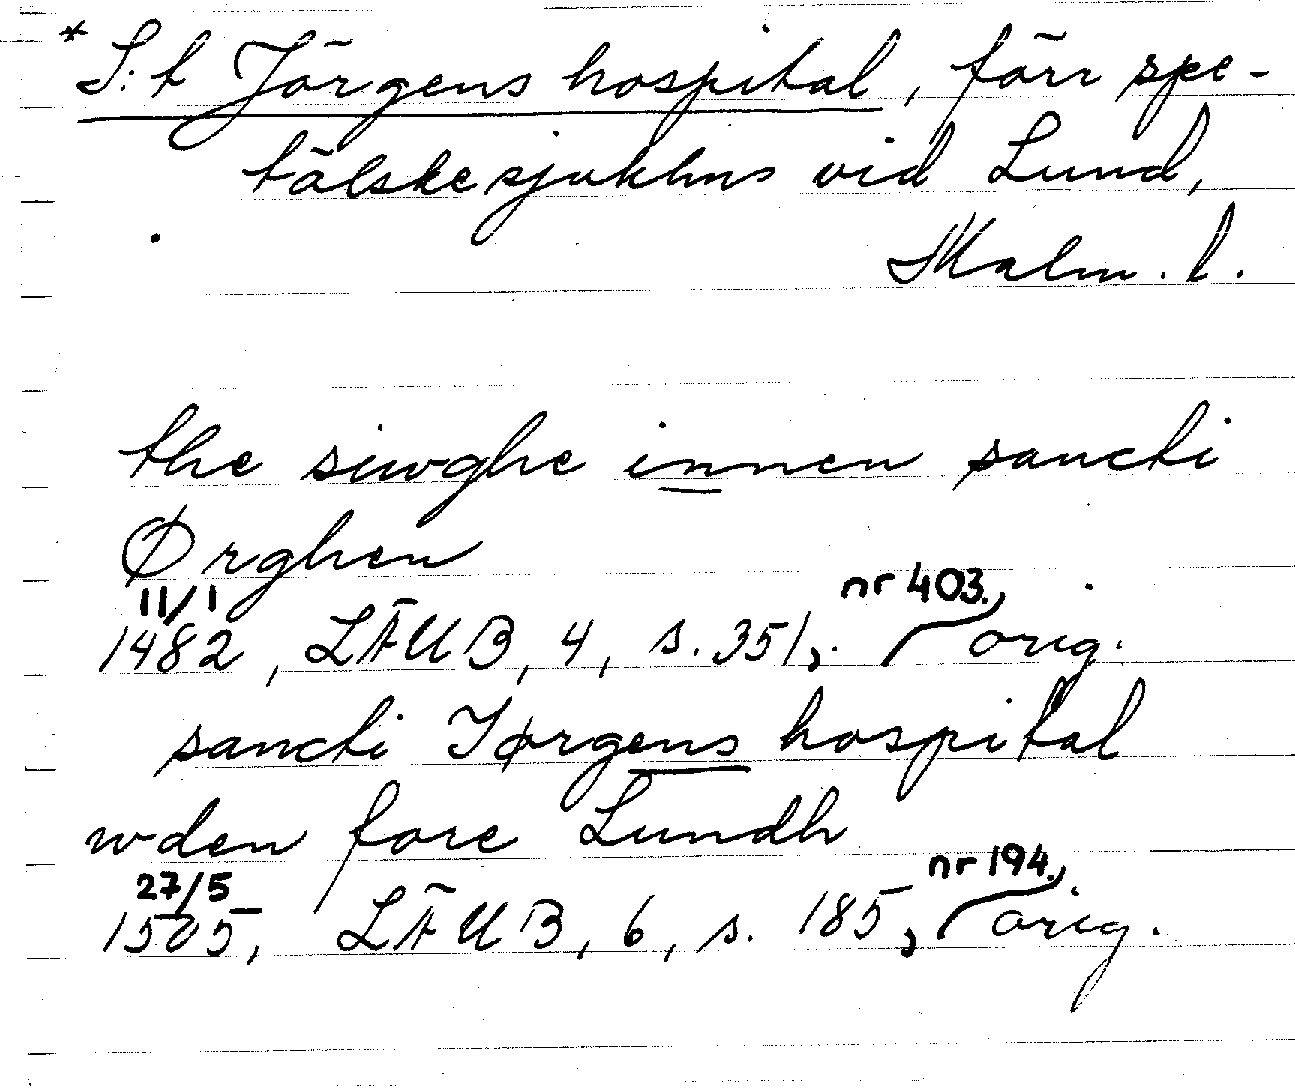 * S:t Jörgens hospital, förr spe-
tälskesjukhus vid Lund,
Malm. l.
the siwghe innen sancti
Ørghen
11/1 nr 403.,
1482, LÄUB, 4, s. 351,. orig.
sancti Jørgens hospital
wden fore Lundh
27/5 nr 194.,
1505, LÄUB, 6, s. 185, orig.